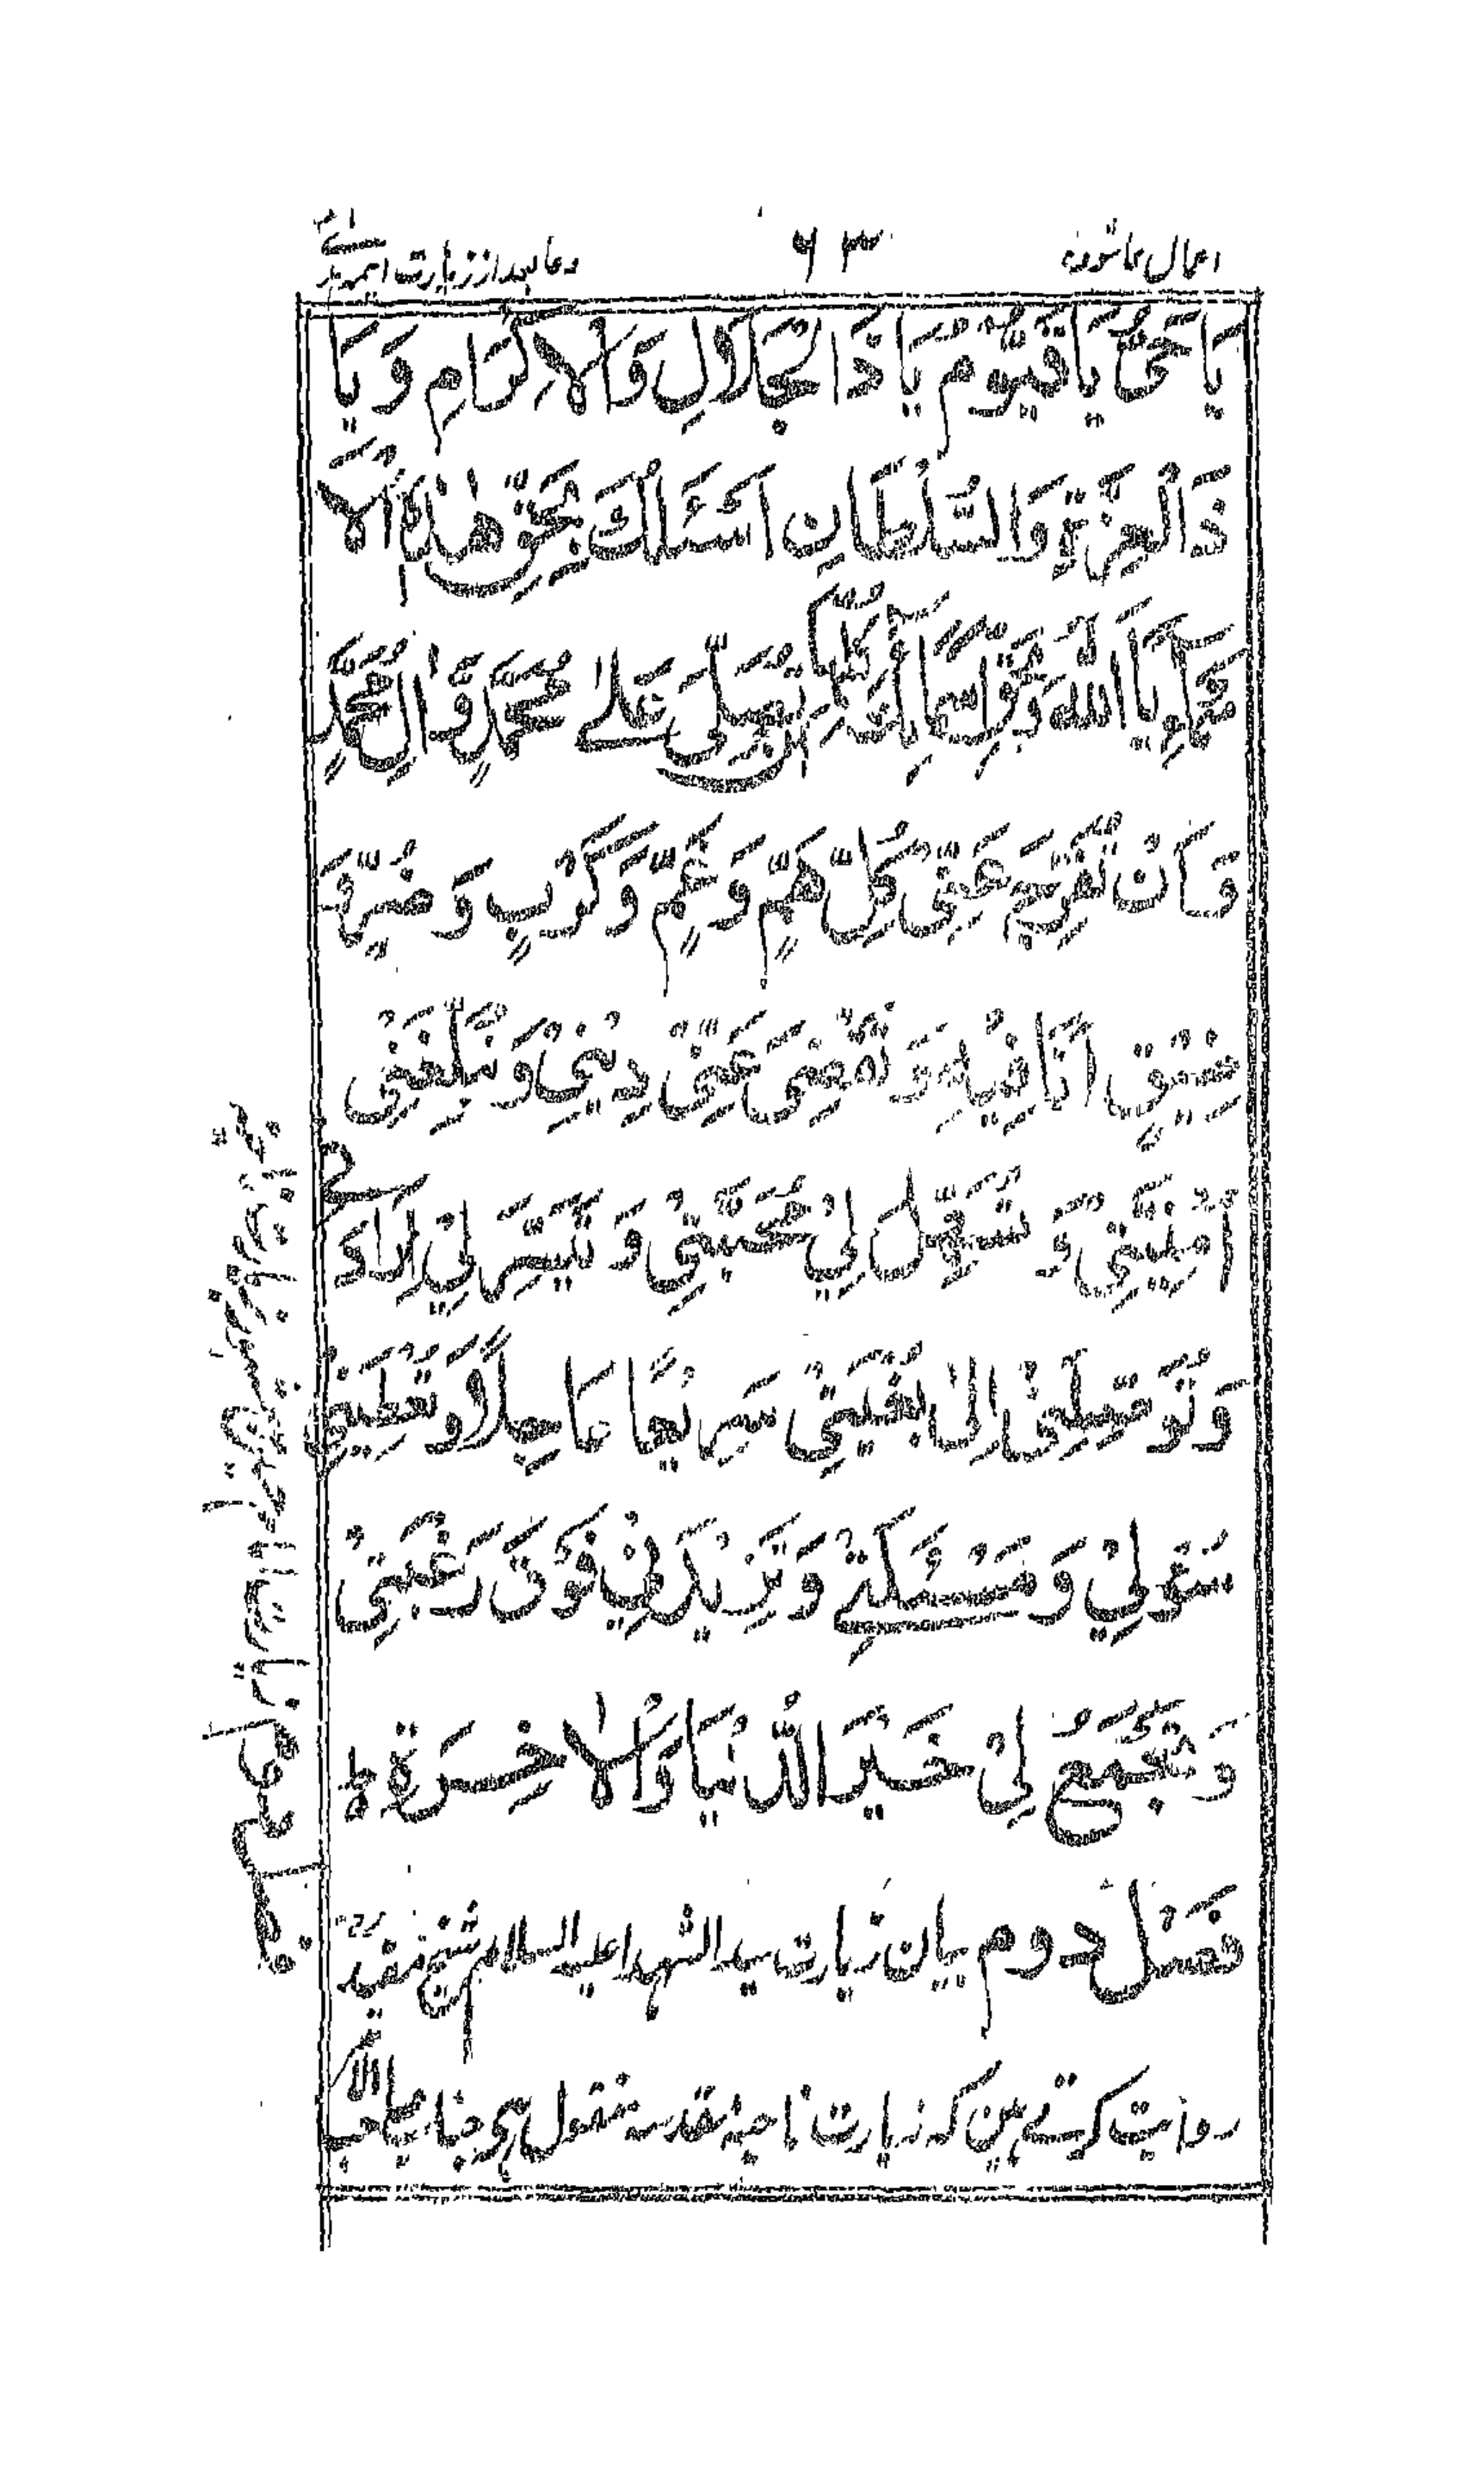 اعمال عاشورہ
۶۳
دعا بعد از زیارت
يَا حَيُّ يَا قَيُّوْمُ يَا ذَا الْجَلَالِ وَالْاِكْرَامِ وَ يَا
ذَا الْعِزَّةِ وَالسُّلْطَانِ اَسْئَلُكَ بِحَقِّ هٰذِهِ الْاَسْ
مَاءِ يَا اَللّٰهُ وَ بِحَقِّ اَسْمَائِكَ كُلِّهَا اَنْ تُصَلِّيَ عَلٰے مُحَمَّدٍ وَّ اٰلِ مُحَمَّدٍ
وَ اَنْ تُفَرِّجَ عَنِّيْ كُلَّ هَمٍّ وَ غَمٍّ وَ كَرْبٍ وَ ضُرٍّ وَّ
ضِيْقٍ اَنَا فِيْهِ وَ تَقْضِيَ عَنِّيْ دَيْنِيْ وَ تُبَلِّغَنِيْ
اُمْنِيَّتِيْ وَ تُسَهِّلَ لِيْ مَحَبَّتِيْ وَ تُيَسِّرَ لِيْ اِرَادَتِيْ
وَ تُوَصِّلَنِيْ اِلٰى بُغْيَتِيْ سَرِيْعًا عَاجِلًا وَّ تُعْطِيَنِيْ
سُؤْلِيْ وَ مَسْئَلَتِيْ وَ تَزِيْدَنِيْ فَوْقَ رَغْبَتِيْ
وَ تَجْمَعَ لِيْ خَيْرَ الدُّنْيَا وَالْاٰخِرَةِ ط
فصل دوم بیان زیارت سید الشہدا علیہ السلام شیخ مفیدؒ
روایت کرتے ہین کہ زیارت ناحیہ مقدسہ منقول ہی جناب صاحب الامر